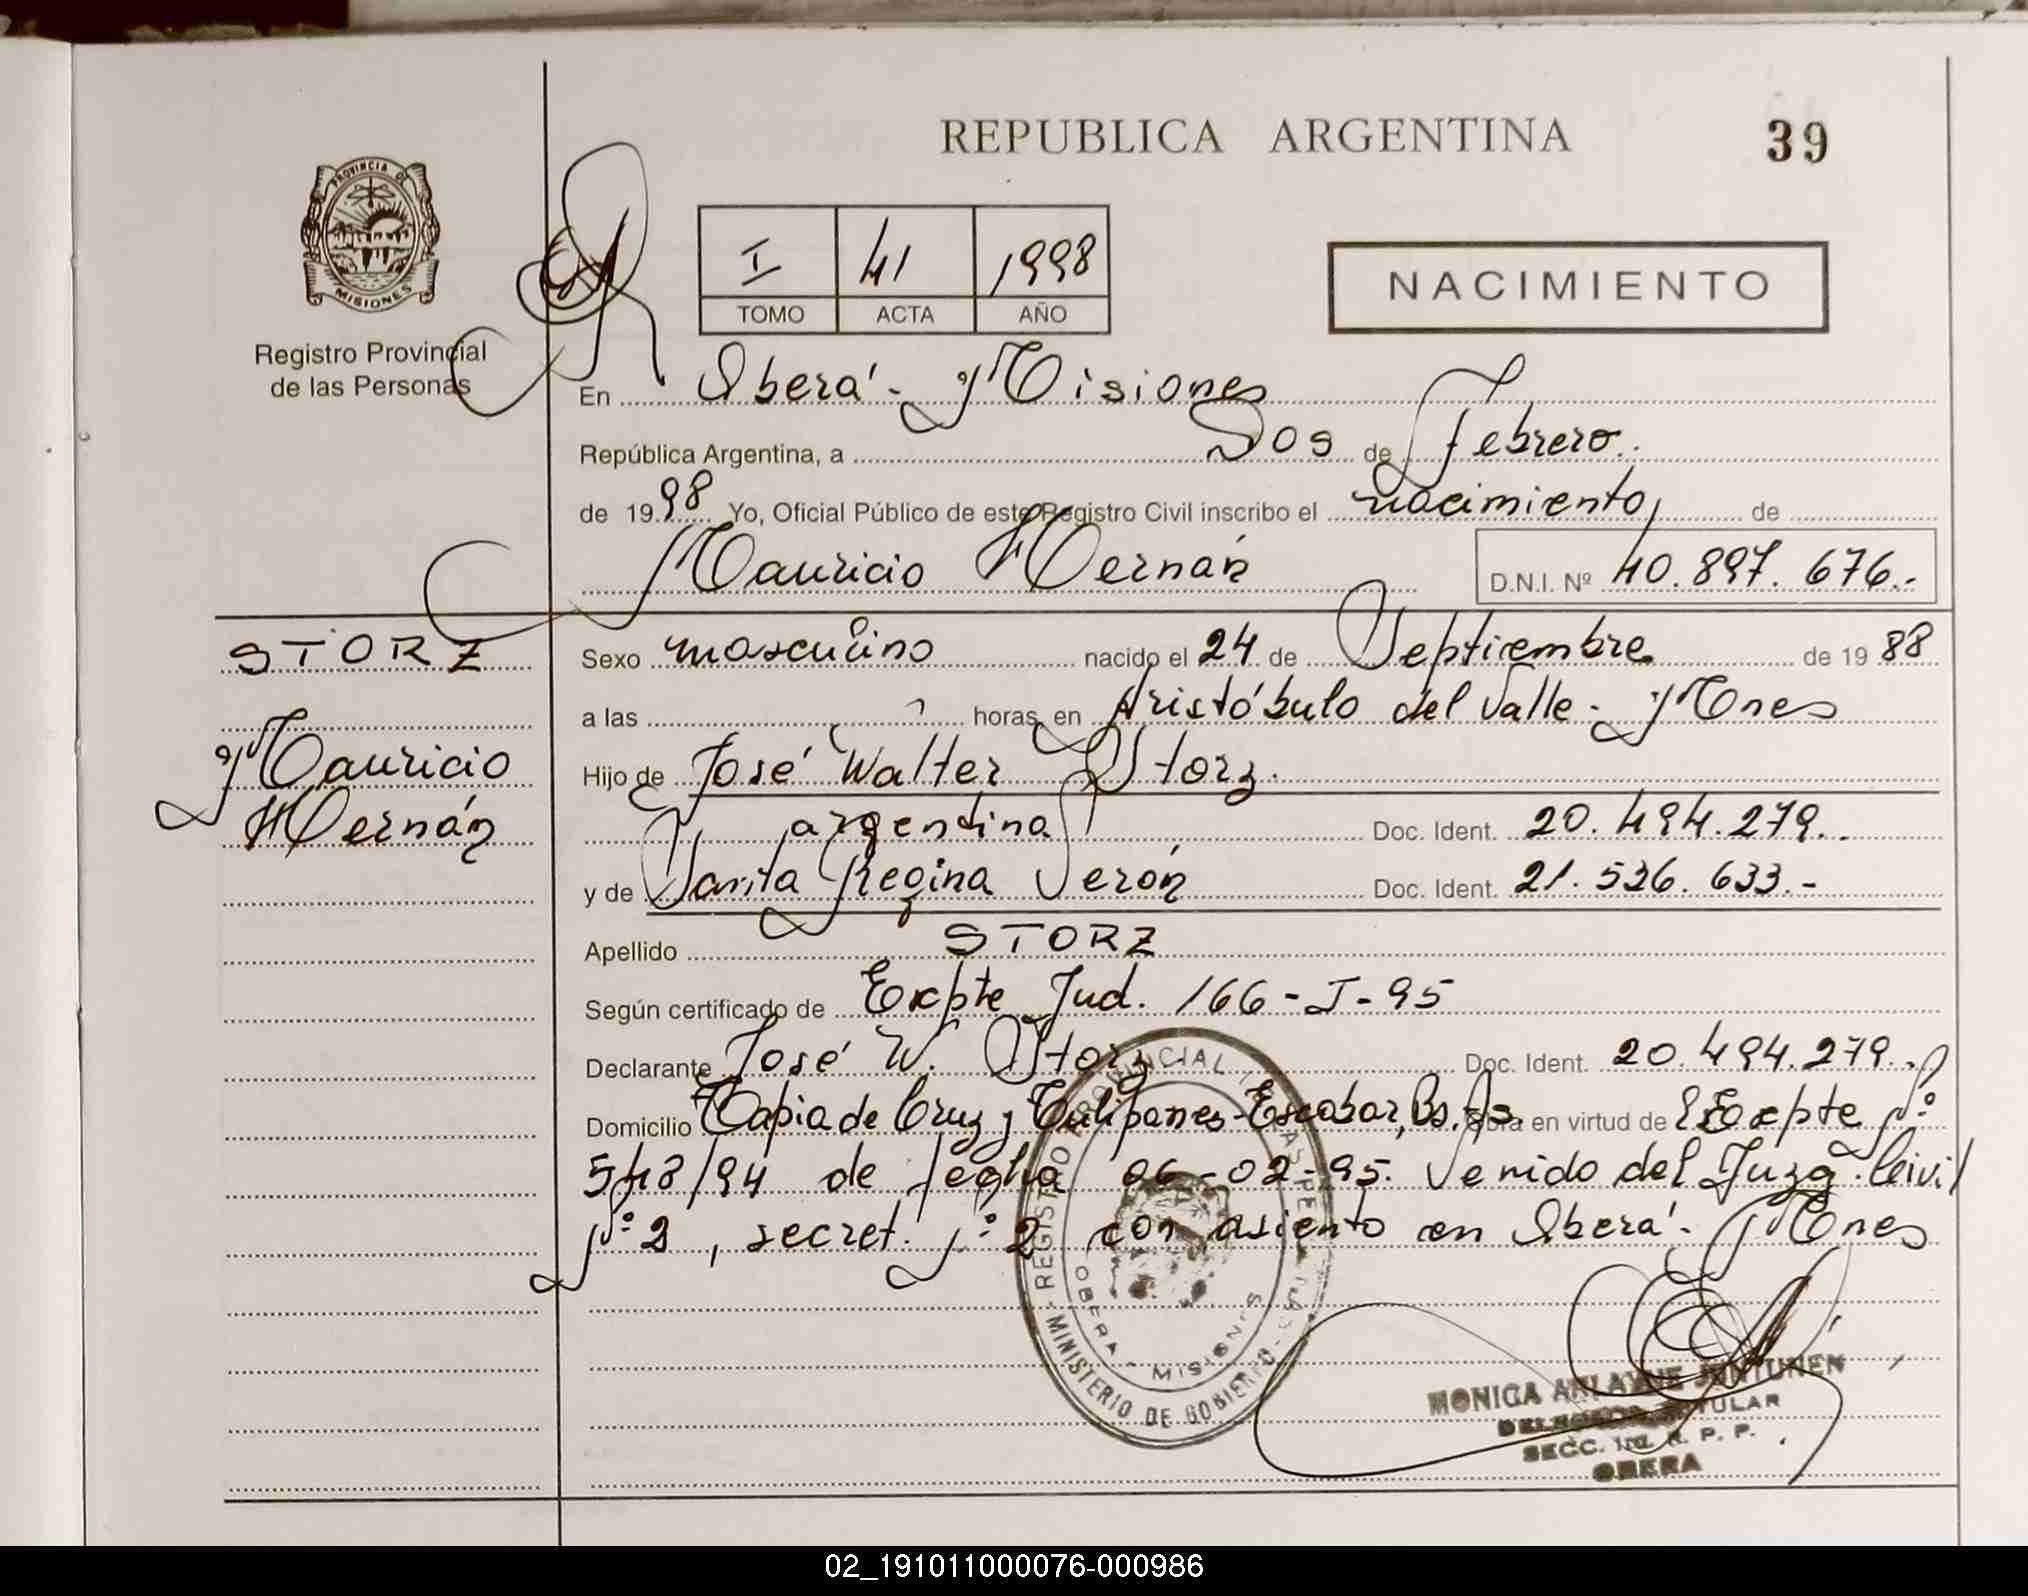 REPUBLICA ARGENTINA
39
PROVINCIA DE
MISIONES
Registro Provincial
de las Personas
I 41 1998
TOMO ACTA AÑO
NACIMIENTO
En Oberá - Misiones
República Argentina, a Dos de Febrero.
de 1998 Yo, Oficial Público de este Registro Civil inscribo el nacimiento, de
Mauricio Hernán D.N.I. Nº 40.897.676.-
STORZ
Mauricio
Hernán
Sexo masculino nacido el 24 de Septiembre de 1988
a las horas, en Aristóbulo del Valle - Mnes
Hijo de José Walter Storz.
argentina Doc. Ident. 20.494.279..
y de Sarita Regina Verón Doc. Ident. 21.526.633.-
Apellido STORZ
Según certificado de Expte Jud. 166-J-95
Declarante José W. Storz Doc. Ident. 20.494.279..
Domicilio Tapia de Cruz y Tulipanes - Escobar, Bs. As. Obra en virtud de Expte Nº
548/94 de fecha 06-02-95. Venido del Juzg. Civil
Nº 2, secret. Nº 2 con asiento en Oberá - Mnes
REGISTRO PROVINCIAL
OBERA - MISIONES
MINISTERIO DE GOBIERNO
MONICA JUNTUNEN
TITULAR
SECC. R. P. P.
OBERA
02_191011000076-000986